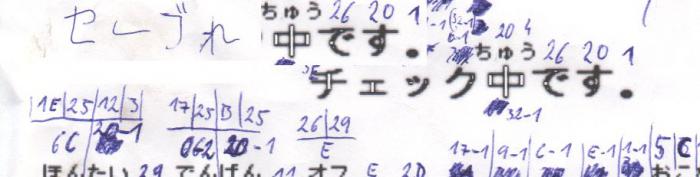 セーブれ
ちゅう 26 20 1
中です。
20 4
ちゅう 26 20 1
チェック中です。
32-1
1E|25|12|3
6C 20-1
17|25|B|25
062 20-1
26|29
E
17-1|9-1|C-1|E-1|1-1|5|C
ほんたい 29 でんげん 11 オフ E 2D